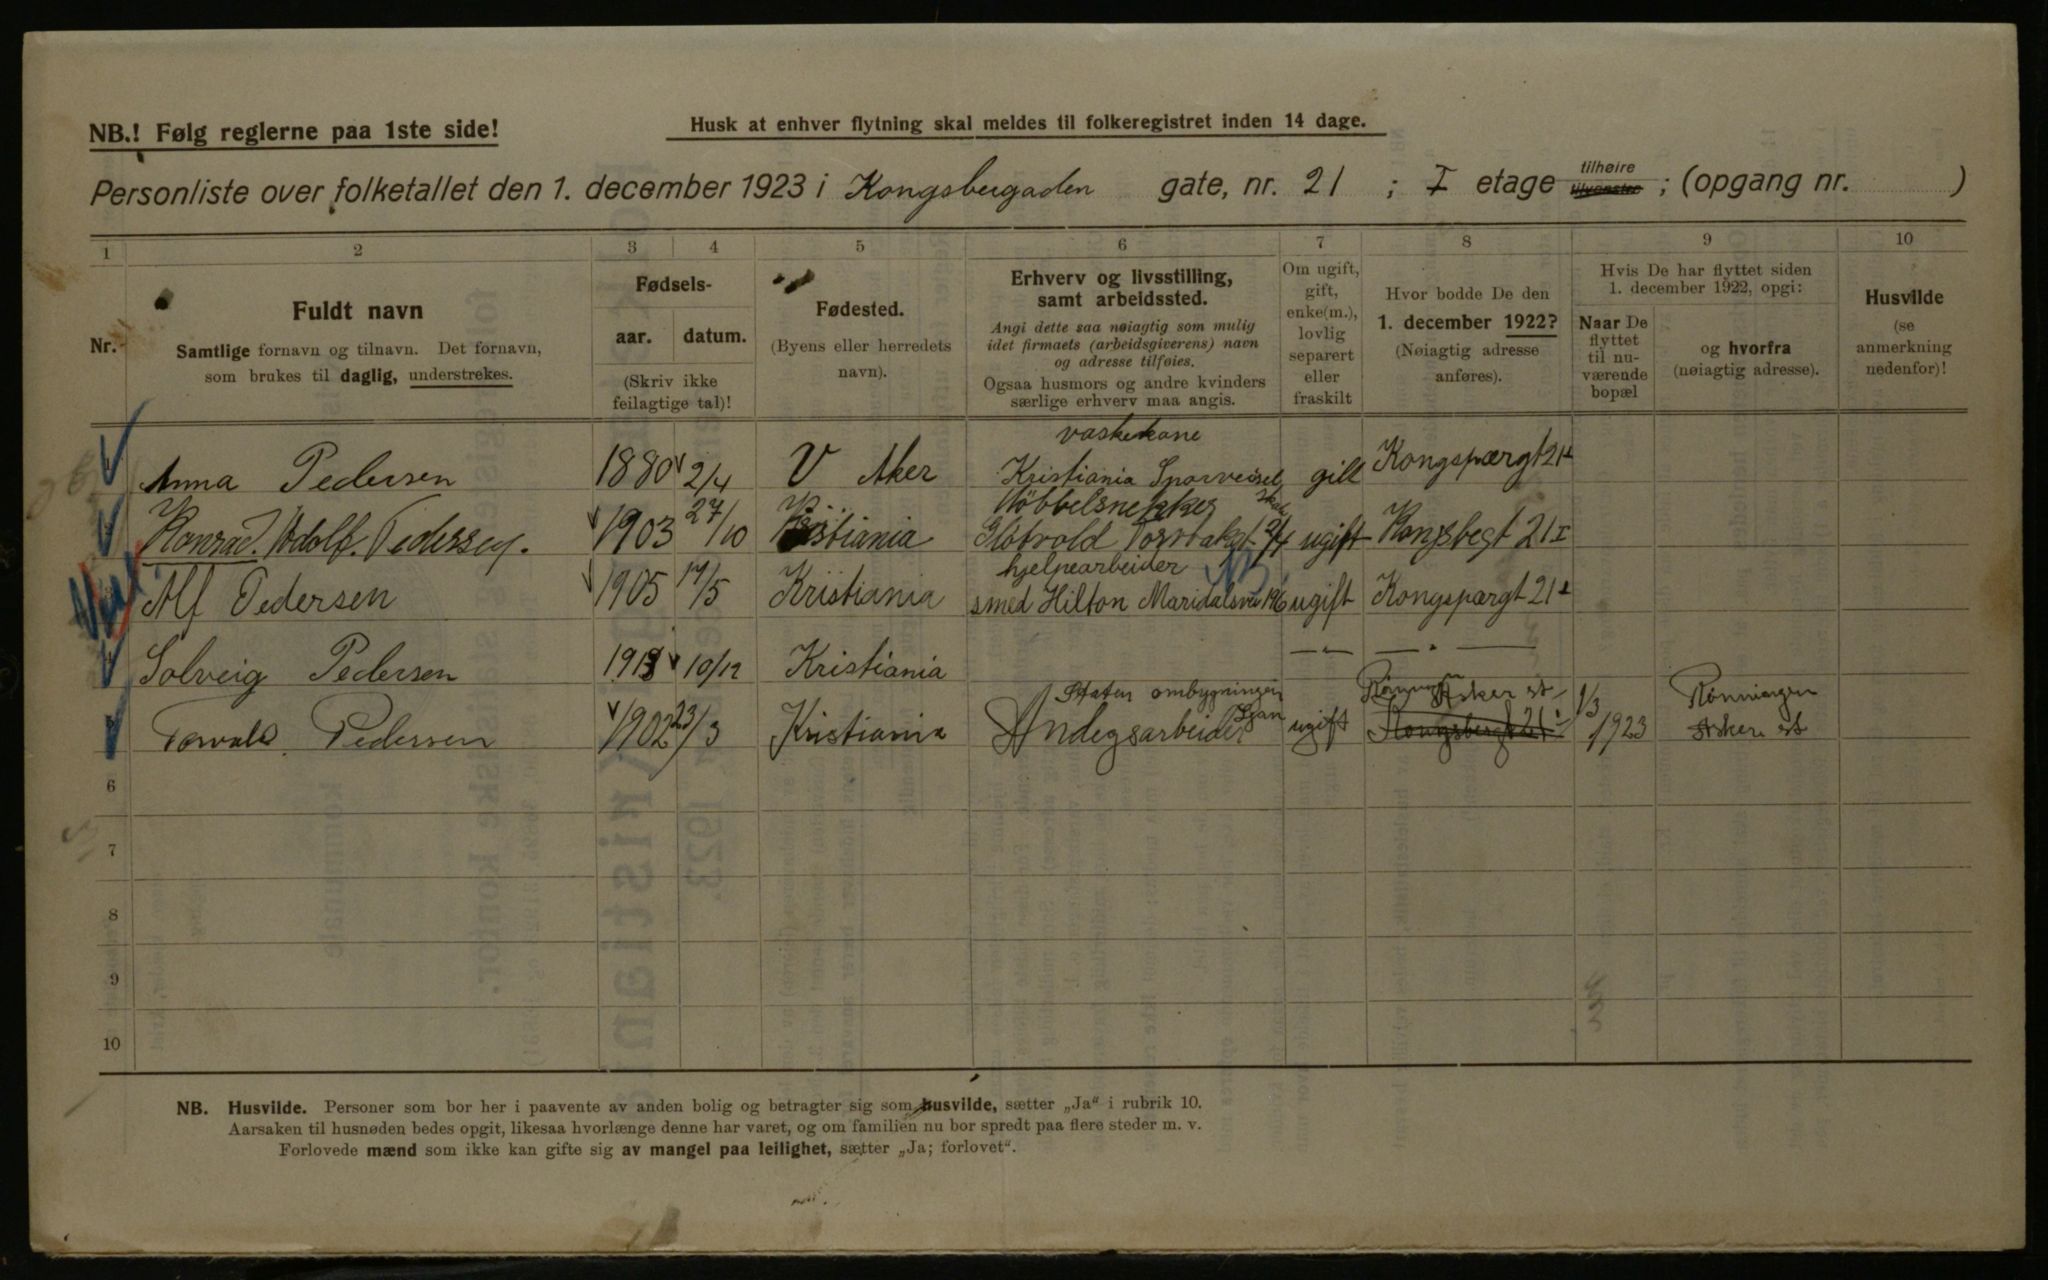 NB.! Følg reglerne paa 1ste side!
Husk at enhver flytning skal meldes til folkeregistret inden 14 dage.
Personliste over folketallet den 1. december 1923 i Kongsbergaden gate, nr. 21 ; I etage tilhøire tilvenstre ; (opgang nr. )
1 2 3 4 5 6 7 8 9 10
Nr.
Fuldt navn
Samtlige fornavn og tilnavn. Det fornavn,
som brukes til daglig, understrekes.
Fødsels-
aar. datum.
(Skriv ikke
feilagtige tal)!
Fødested.
(Byens eller herredets
navn).
Erhverv og livsstilling,
samt arbeidssted.
Angi dette saa nøiagtig som mulig
idet firmaets (arbeidsgiverens) navn
og adresse tilføies.
Ogsaa husmors og andre kvinders
særlige erhverv maa angis.
Om ugift,
gift,
enke(m.),
lovlig
separert
eller
fraskilt
Hvor bodde De den
1. december 1922?
(Nøiagtig adresse
anføres).
Hvis De har flyttet siden
1. december 1922, opgi:
Naar De
flyttet
til nu-
værende
bopæl
og hvorfra
(nøiagtig adresse).
Husvilde
(se
anmerkning
nedenfor)!
vaskekone
Anna Pedersen 1880 2/4 V Aker Kristiania Sporveisel gift Kongspærgt 21 I
Møbbelsnekker
Konrad Adolf Pedersen. 1903 27/10 Kristiania ugift Kongsbegt 21 I
hjelpearbeider
Alf Pedersen 1905 17/5 Kristiania smed Hilton Maridalsvei 196 ugift Kongspærgt 21 I
Solveig Pedersen 10/12 Kristiania — „ — — „ —
Staten ombygningen Rønningen Asker st 1/3 Rønningen
Pedersen 1902 23/3 Kristiania ugift Kongsbergt 21 I 1923 Asker st
6
7
8
9
10
NB. Husvilde. Personer som bor her i paavente av anden bolig og betragter sig som husvilde, sætter „Ja“ i rubrik 10.
Aarsaken til husnøden bedes opgit, likesaa hvorlænge denne har varet, og om familien nu bor spredt paa flere steder m. v.
Forlovede mænd som ikke kan gifte sig av mangel paa leilighet, sætter „Ja; forlovet“.